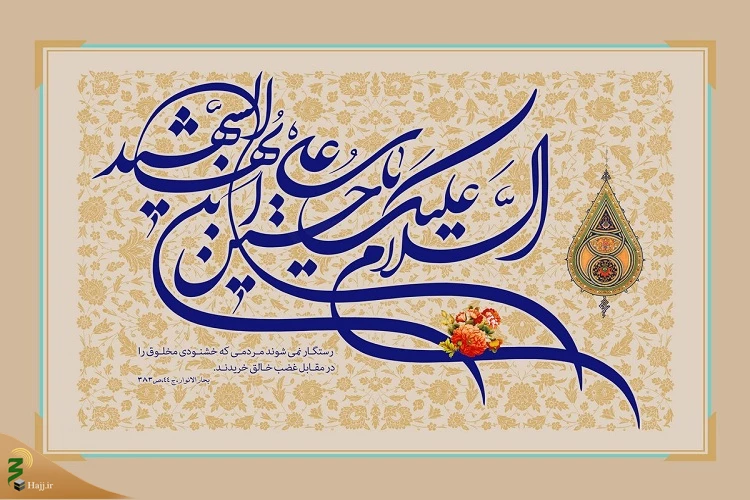 السلام علیک یا حسین بن علی ایها الشهید
رستگار نمی شوند مردمی که خشنودی مخلوق را
در مقابل غضب خالق خریدند.
بحار الانوار، ج۴۴، ص۳۸۳
Hajj.ir